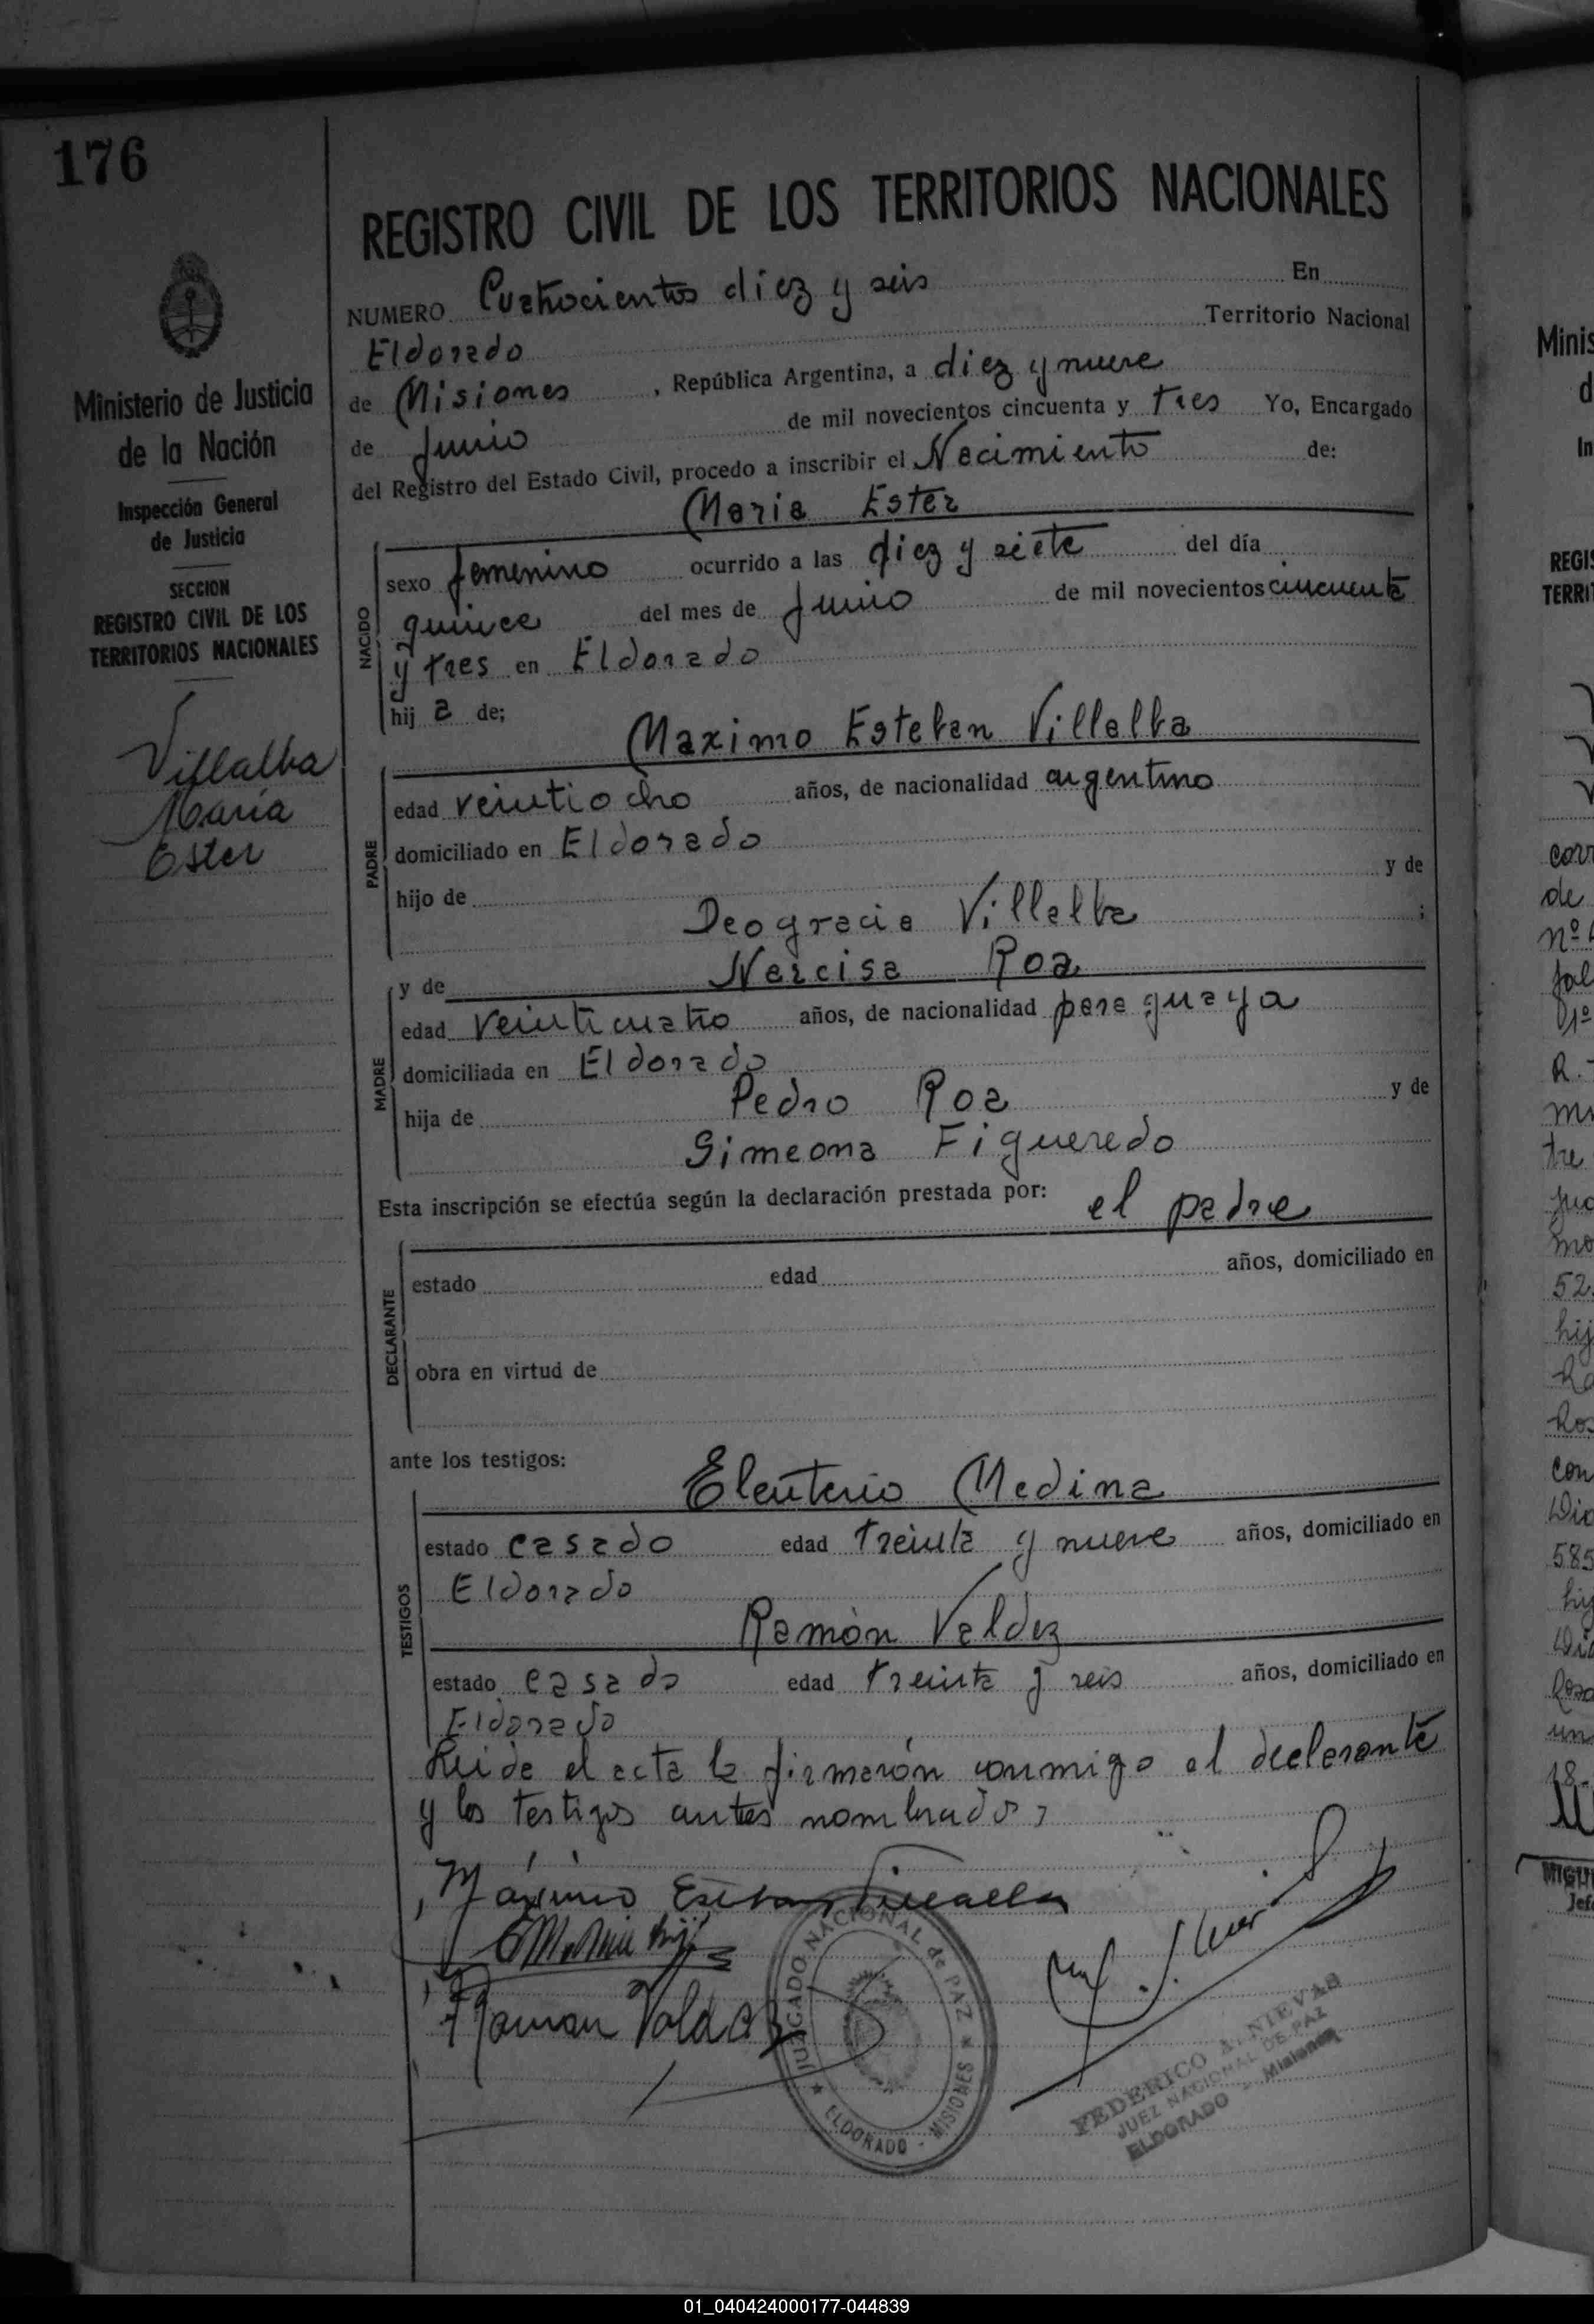 176
REGISTRO CIVIL DE LOS TERRITORIOS NACIONALES
NUMERO Cuatrocientos diez y seis En
Eldorado Territorio Nacional
de Misiones, República Argentina, a diez y nueve
de Junio de mil novecientos cincuenta y tres Yo, Encargado
del Registro del Estado Civil, procedo a inscribir el Nacimiento de:
Maria Ester
Ministerio de Justicia
de la Nación
Inspección General
de Justicia
SECCION
REGISTRO CIVIL DE LOS
TERRITORIOS NACIONALES
Villalba
María
Ester
NACIDO
sexo femenino ocurrido a las diez y siete del día
quince del mes de Junio de mil novecientos cincuenta
y tres en Eldorado
hij a de;
Maximo Esteban Villalba
PADRE
edad veintiocho años, de nacionalidad argentino
domiciliado en Eldorado
hijo de y de
Deogracia Villalba ;
y de Narcisa Roa
MADRE
edad veinticuatro años, de nacionalidad paraguaya
domiciliada en Eldorado
hija de Pedro Roa y de
Simeona Figueredo
Esta inscripción se efectúa según la declaración prestada por: el padre
DECLARANTE
estado edad años, domiciliado en
obra en virtud de
ante los testigos:
Eleuterio Medina
TESTIGOS
estado casado edad treinta y nueve años, domiciliado en
Eldorado
Ramón Valdez
estado casado edad treinta y seis años, domiciliado en
Eldorado
Leida el acta la firmarón conmigo el declarante
y los testigos antes nombrados
Máximo Esteban Villalba
Ramon Valdez
JUZGADO NACIONAL de PAZ
ELDORADO - MISIONES
FEDERICO A. NIEVAS
JUEZ NACIONAL DE PAZ
ELDORADO - Misiones
Minis
d
In
REGIS
TERRI
corr
de
nº
R.
52
hij
Ros
con
585
un
18
MIGU
Jef
01_040424000177-044839